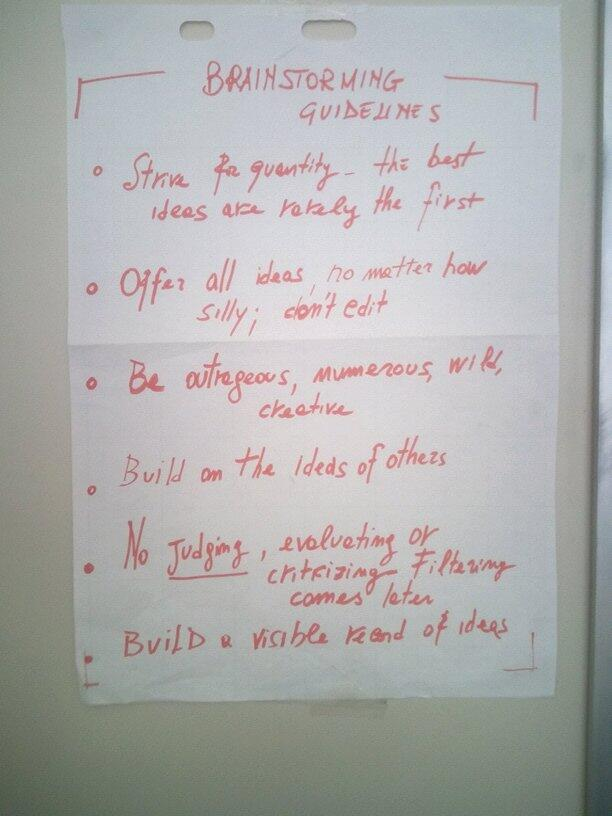 BRAINSTORMING
GUIDELINES
Strive for quantity - the best
ideas are rarely the first
Offer all ideas, no matter how
silly; don't edit
Be outrageous, numerous, wild,
creative
Build on the ideas of others
No Judging, evaluating or
critcizing Filtering
comes later
BUILD a visible record of ideas